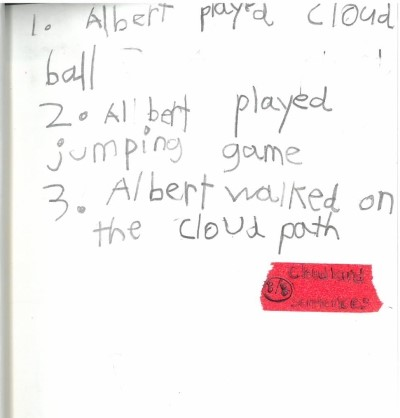 1. Albert played cloud
ball
2. Albert played
jumping game
3. Albert walked on
the cloud path
Cloudland
8/8
sentences